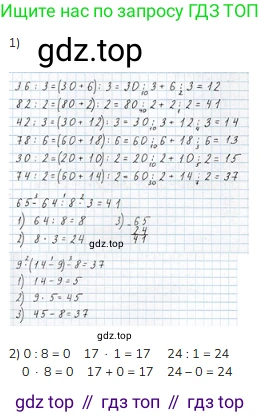 Ищите нас по запросу ГДЗ ТОП
1) gdz.top
36 : 3 = (30 + 6) : 3 = 30 : 3 + 6 : 3 = 12
82 : 2 = (80 + 2) : 2 = 80 : 2 + 2 : 2 = 41
42 : 3 = (30 + 12) : 3 = 30 : 3 + 12 : 3 = 14
78 : 6 = (60 + 18) : 6 = 60 : 6 + 18 : 6 = 13
30 : 2 = (20 + 10) : 2 = 20 : 2 + 10 : 2 = 15
74 : 2 = (60 + 14) : 2 = 60 : 2 + 14 : 2 = 37
65 - 64 : 8 · 3 = 41
1) 64 : 8 = 8 3) 65
2) 8 · 3 = 24 24
41
gdz.top
9 · (14 - 9) - 8 = 37
1) 14 - 9 = 5
2) 9 · 5 = 45
3) 45 - 8 = 37
2) 0 : 8 = 0 17 · 1 = 17 24 : 1 = 24
0 · 8 = 0 17 + 0 = 17 24 − 0 = 24
gdz.top // gdz.top // gdz.top //